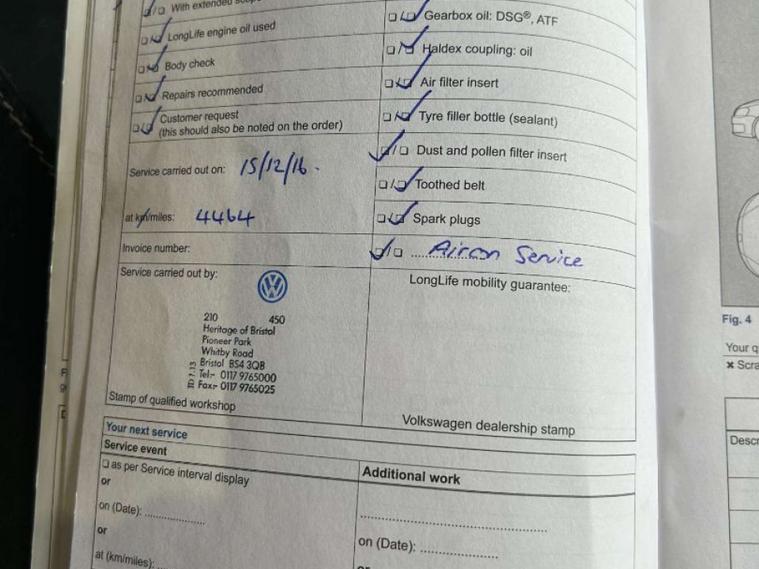 With extended
LongLife engine oil used
Body check
Repairs recommended
Customer request
(this should also be noted on the order)
Service carried out on: 15/12/16.
at km/miles: 4464
Invoice number:
Service carried out by:
210 450
Heritage of Bristol
Pioneer Park
Whitby Road
Bristol BS4 3QB
Tel:- 0117 9765000
Fax:- 0117 9765025
Stamp of qualified workshop
Gearbox oil: DSG®, ATF
Haldex coupling: oil
Air filter insert
Tyre filler bottle (sealant)
Dust and pollen filter insert
Toothed belt
Spark plugs
Aircon Service
LongLife mobility guarantee:
Volkswagen dealership stamp
Your next service
Service event
as per Service interval display
or
on (Date): ....................
or
at (km/miles):
Additional work
on (Date): ....................
or
Fig. 4
Your q
× Scra
Descr